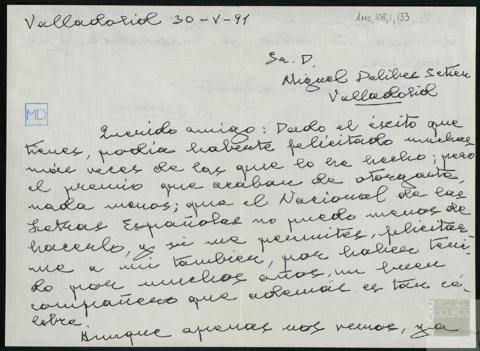 Valladolid 30-V-91
AMD,108,1,133
Sr. D.
Miguel Delibes Setien
Valladolid
MD
Querido amigo: Dado el éxito que
tienes, podía haberte felicitado muchas
más veces de las que lo he hecho; pero
el premio que acaban de otorgarte,
nada menos; que el Nacional de las
Letras Españolas no puedo menos de
hacerlo, y si me permites, felicitar-
me a mi tambien, por haber teni-
do por muchos años, un buen
compañero que además es tan cé-
lebre.
Aunque apenas nos vemos, ya
MIGUEL
DELIBES